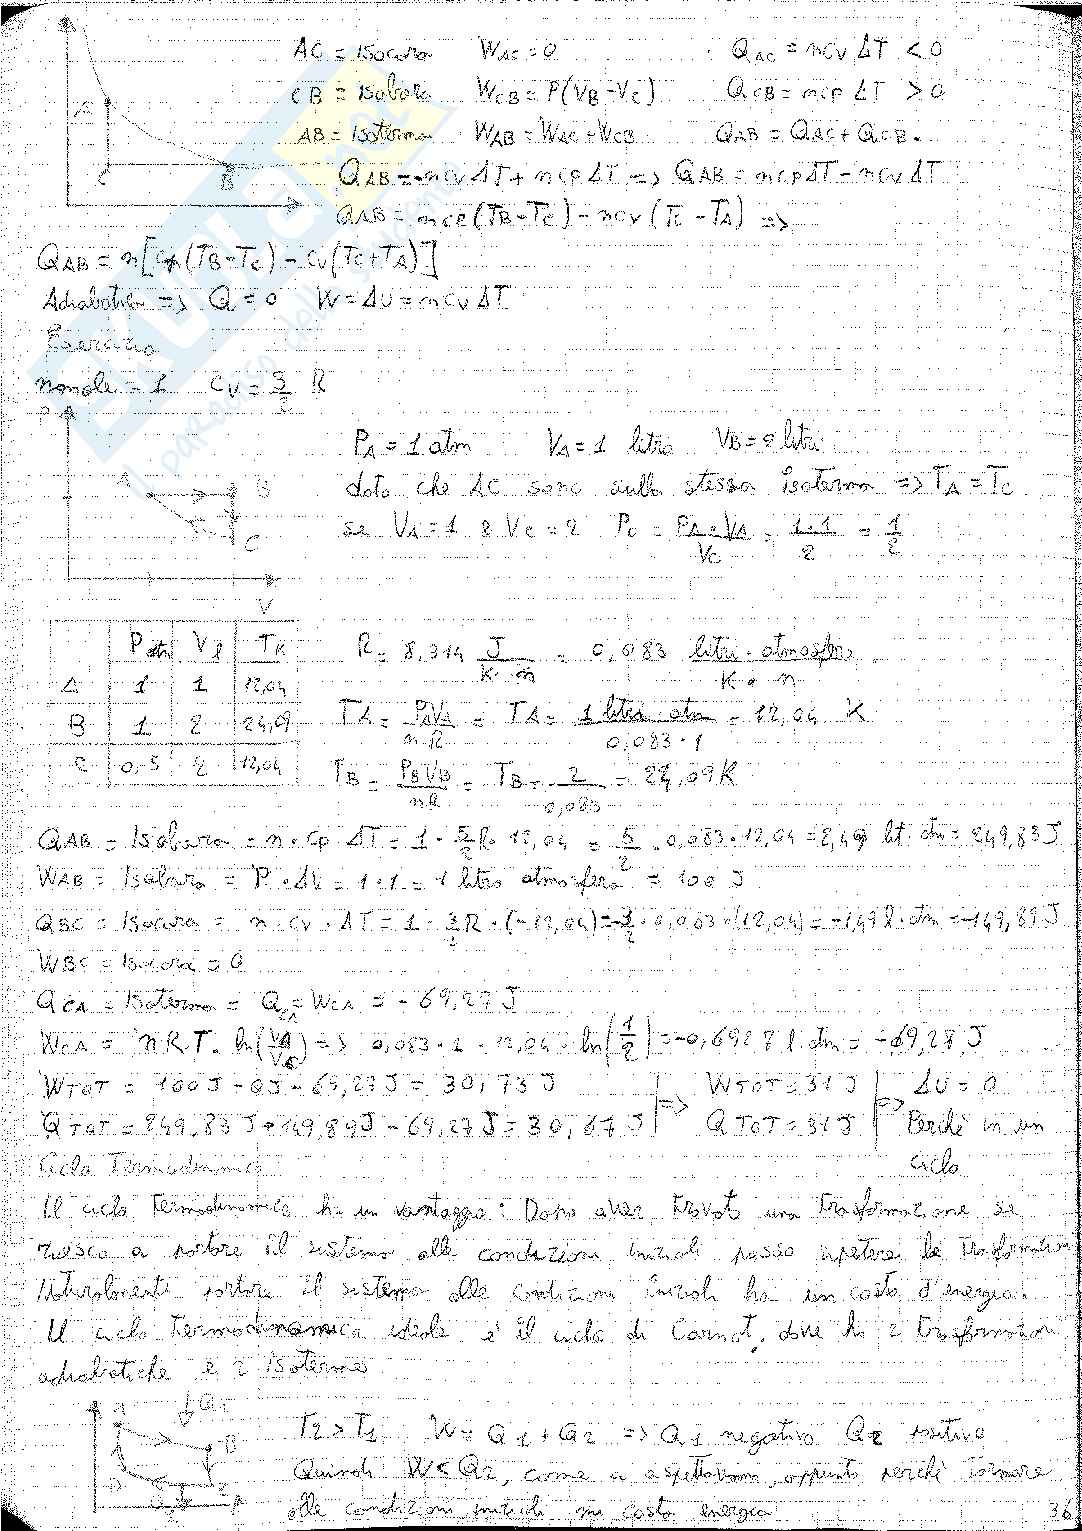 AC = Isocora W_AC = 0 Q_AC = n c_v ΔT < 0
CB = Isobara W_CB = P(V_B - V_C) Q_CB = n c_p ΔT > 0
AB = Isoterma W_AB = W_AC + W_CB Q_AB = Q_AC + Q_CB
Q_AB = -n c_v ΔT + n c_p ΔT => Q_AB = n c_p ΔT - n c_v ΔT
Q_AB = n c_p (T_B - T_C) - n c_v (T_C - T_A) =>
A
C B
Q_AB = n[c_p(T_B - T_C) - c_v(T_C + T_A)]
Adiabatica => Q = 0 W = ΔU = n c_v ΔT
Esercizio
n mole = 1 c_v = 3/2 R
P
P_A = 1 atm V_A = 1 litro V_B = 2 litri
A B
dato che AC sono sulla stessa isoterma => T_A = T_C
se V_A = 1 e V_C = 2 P_C = P_A · V_A / V_C = 1·1/2 = 1/2
C
V
P atm V l T K
R = 8,314 J/(K · n) = 0,083 litri · atmosfera/(K · n)
A 1 1 12,04
B 1 2 24,09
T_A = P_A V_A / nR = T_A = 1 litro atm / 0,083 · 1 = 12,04 K
C 0,5 2 12,04
T_B = P_B V_B / nR = T_B = 2 / 0,083 = 24,09 K
Q_AB = Isobara = n · c_p · ΔT = 1 · 5/2 R · 12,04 = 5/2 · 0,083 · 12,04 = 2,49 lt. atm = 249,83 J
W_AB = Isobara = P · ΔV = 1 · 1 = 1 litro atmosfera = 100 J
Q_BC = Isocora = n · c_v · ΔT = 1 · 3/2 R · (-12,04) = -3/2 · 0,083 · (12,04) = -1,49 l · atm = -149,89 J
W_BC = Isocora = 0
Q_CA = Isoterma = Q_CA = W_CA = - 69,27 J
W_CA = n R T · ln(V_A/V_C) => 0,083 · 1 · 12,04 · ln(1/2) = -0,6927 l · atm = -69,27 J
W TOT = 100 J - 0 J - 69,27 J = 30,73 J => W TOT = 31 J => ΔU = 0
Q TOT = 249,83 J - 149,89 J - 69,27 J = 30,67 J Q TOT = 31 J Perché in un
ciclo
Ciclo Termodinamico
Il ciclo termodinamico ha un vantaggio: Dopo aver trovato una trasformazione se
riesco a portare il sistema alle condizioni iniziali posso ripetere la trasformazione
Naturalmente portare il sistema alle condizioni iniziali ha un costo d'energia.
Il ciclo termodinamico ideale è il ciclo di Carnot, dove ho 2 trasformazioni
adiabatiche e 2 isoterme
Q_2
A B
T_2 > T_1 W = Q_1 + Q_2 => Q_1 negativo Q_2 positivo
Quindi W < Q_2, come ci aspettavamo, appunto perché tornare
D
alle condizioni iniziali mi costa energia
36